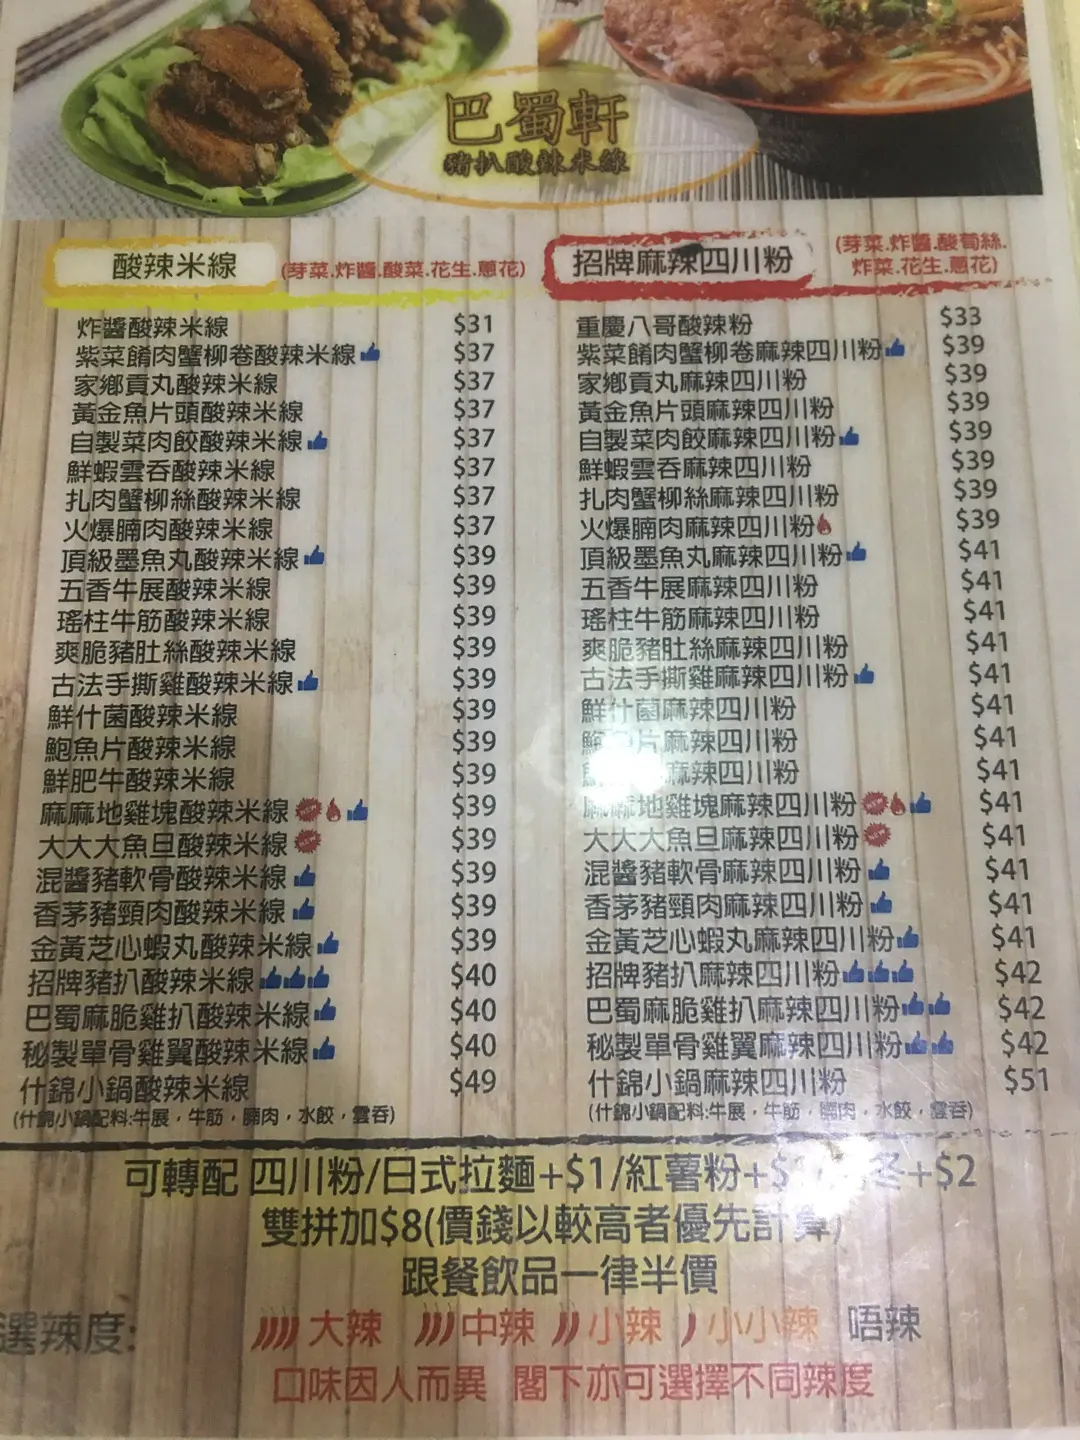 巴蜀軒
豬扒酸辣米線
酸辣米線 (芽菜.炸醬.酸菜.花生.蔥花)
炸醬酸辣米線 $31
紫菜餚肉蟹柳卷酸辣米線 $37
家鄉貢丸酸辣米線 $37
黃金魚片頭酸辣米線 $37
自製菜肉餃酸辣米線 $37
鮮蝦雲吞酸辣米線 $37
扎肉蟹柳絲酸辣米線 $37
火爆腩肉酸辣米線 $37
頂級墨魚丸酸辣米線 $39
五香牛展酸辣米線 $39
瑤柱牛筋酸辣米線 $39
爽脆豬肚絲酸辣米線 $39
古法手撕雞酸辣米線 $39
鮮什菌酸辣米線 $39
鮑魚片酸辣米線 $39
鮮肥牛酸辣米線 $39
麻麻地雞塊酸辣米線 $39
大大大魚旦酸辣米線 $39
混醬豬軟骨酸辣米線 $39
香茅豬頸肉酸辣米線 $39
金黃芝心蝦丸酸辣米線 $39
招牌豬扒酸辣米線 $40
巴蜀麻脆雞扒酸辣米線 $40
秘製單骨雞翼酸辣米線 $40
什錦小鍋酸辣米線 $49
(什錦小鍋配料:牛展，牛筋，腩肉，水餃，雲吞)
招牌麻辣四川粉 (芽菜.炸醬.酸荀絲.
炸菜.花生.蔥花)
重慶八哥酸辣粉 $33
紫菜餚肉蟹柳卷麻辣四川粉 $39
家鄉貢丸麻辣四川粉 $39
黃金魚片頭麻辣四川粉 $39
自製菜肉餃麻辣四川粉 $39
鮮蝦雲吞麻辣四川粉 $39
扎肉蟹柳絲麻辣四川粉 $39
火爆腩肉麻辣四川粉 $39
頂級墨魚丸麻辣四川粉 $41
五香牛展麻辣四川粉 $41
瑤柱牛筋麻辣四川粉 $41
爽脆豬肚絲麻辣四川粉 $41
古法手撕雞麻辣四川粉 $41
鮮什菌麻辣四川粉 $41
片麻辣四川粉 $41
麻辣四川粉 $41
麻麻地雞塊麻辣四川粉 $41
大大大魚旦麻辣四川粉 $41
混醬豬軟骨麻辣四川粉 $41
香茅豬頸肉麻辣四川粉 $41
金黃芝心蝦丸麻辣四川粉 $41
招牌豬扒麻辣四川粉 $42
巴蜀麻脆雞扒麻辣四川粉 $42
秘製單骨雞翼麻辣四川粉 $42
什錦小鍋麻辣四川粉 $51
(什錦小鍋配料:牛展，牛筋，腩肉，水餃，雲吞)
可轉配 四川粉/日式拉麵+$1/紅薯粉+ 冬+$2
雙拼加$8(價錢以較高者優先計算)
跟餐飲品一律半價
選辣度: 大辣 中辣 小辣 小小辣 唔辣
口味因人而異 閣下亦可選擇不同辣度